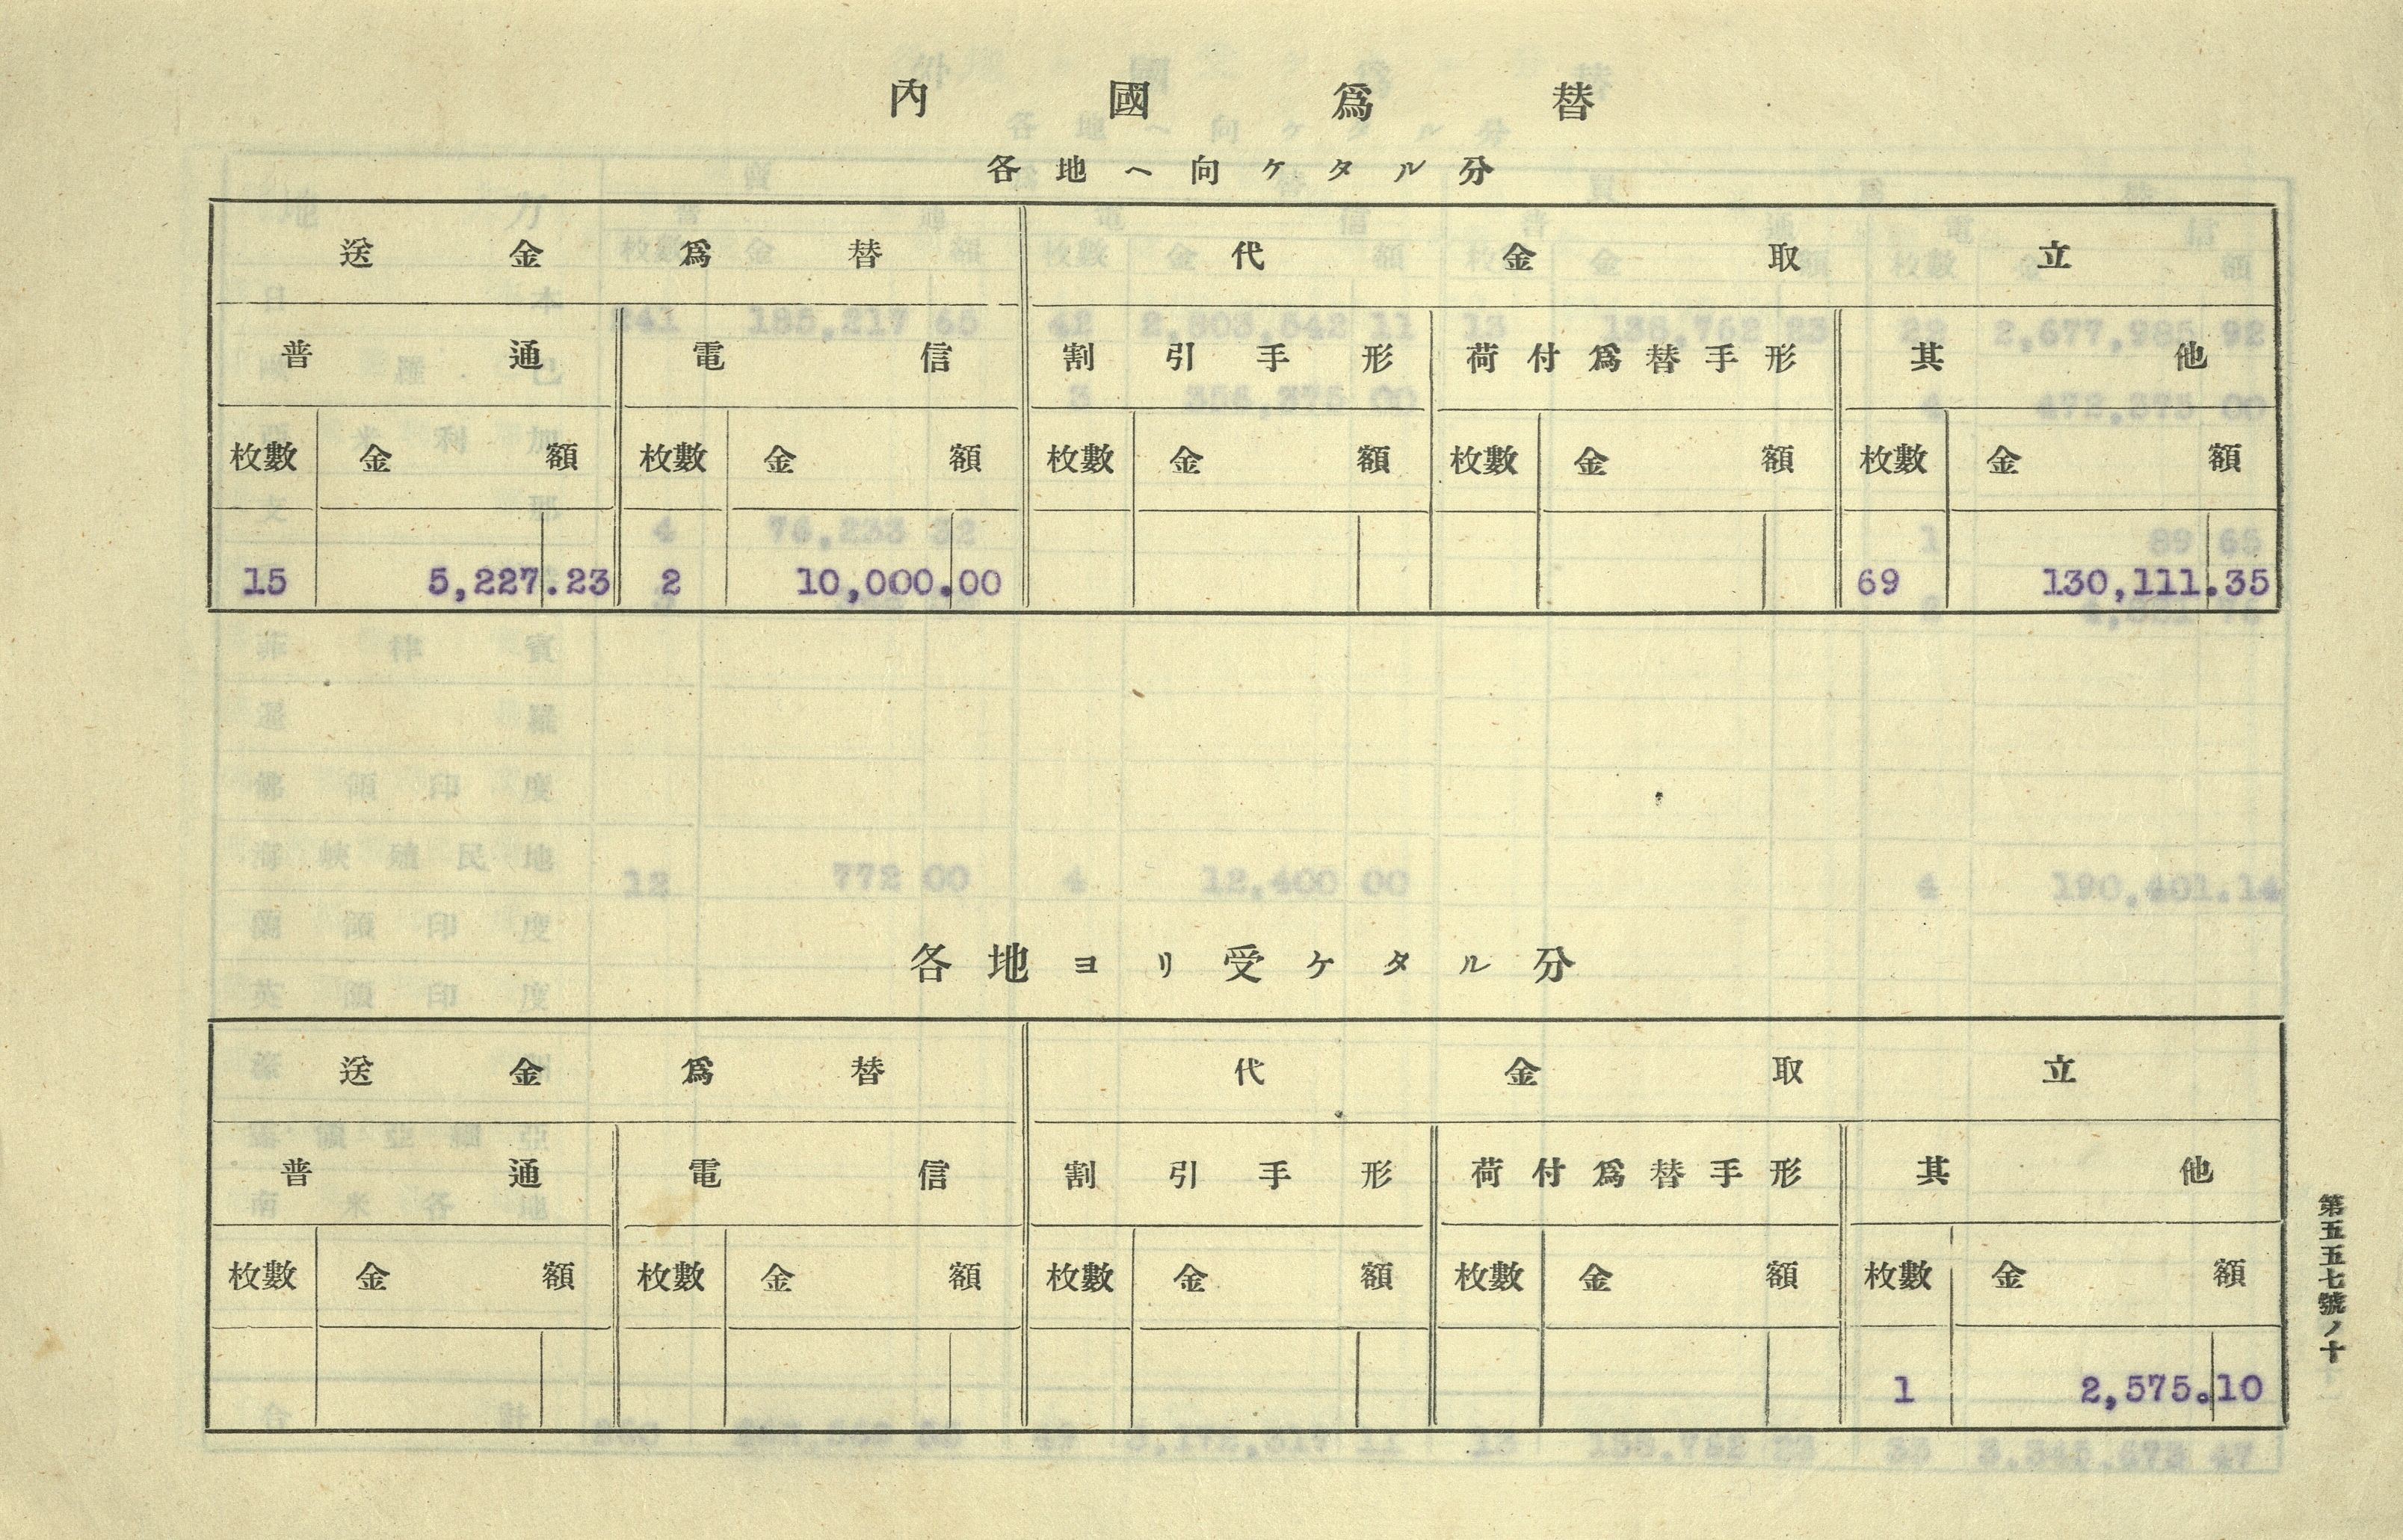 內國爲替
各地ヘ向ケタル分
送金爲替 代金取立
普通 電信 割引手形 荷付爲替手形 其他
枚數 金額 枚數 金額 枚數 金額 枚數 金額 枚數 金額
15 5,227.23 2 10,000.00 69 130,111.35
各地ヨリ受ケタル分
送金爲替 代金取立
普通 電信 割引手形 荷付爲替手形 其他
枚數 金額 枚數 金額 枚數 金額 枚數 金額 枚數 金額
1 2,575.10
第五五七號ノ十